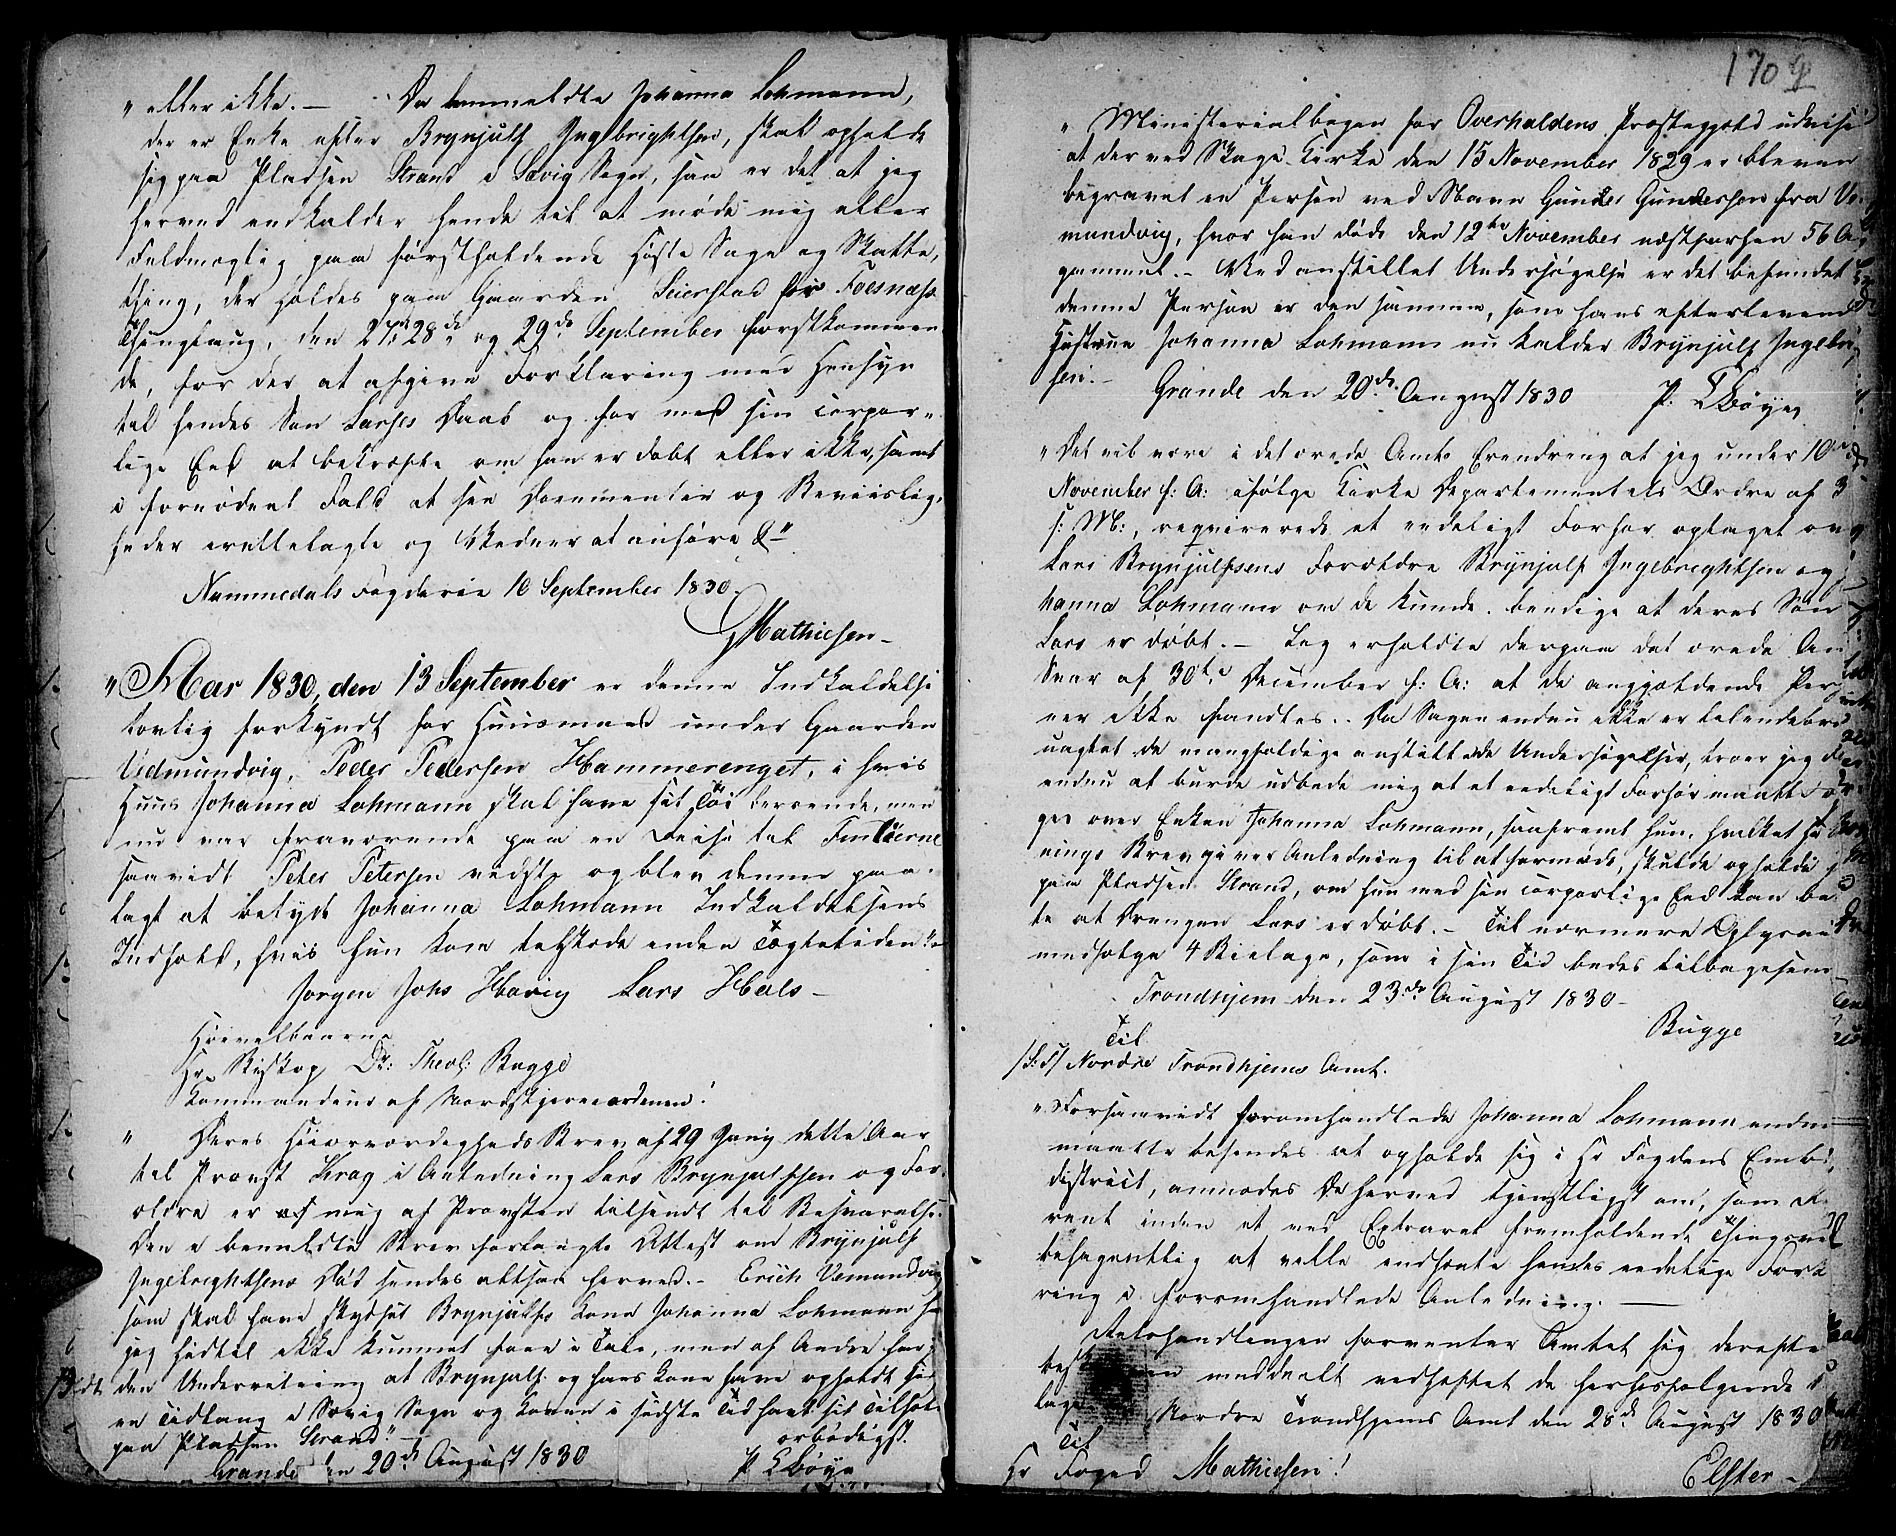 " eller ikke. — Da bemeldte Johanna Lohmann,
der er Enke efter Brynjulf Ingebrightsen, skal opholde
sig paa Pladsen Strand i Sævig Sogn, saa er det at jeg
herved indkalder hende til at møde mig eller
Fuldmægtig paa førstholdende Høste Sage og Skatte,
thing, der holdes paa Gaarden Seierstad for Foesnæss
Thinglaug, den 27de 28de og 29de September førstkommen
de, for der at afgive Forklaring med Hensyn
til hendes Søn Larses Daab og for med sin corpor„
lige Eed at bekræfte om han er døbt eller ikke, samt
i fornødent Fald at see Documenter og Beviislig,
heder irettelagte og Vidner at anføre &"
Nummedals Fogderie 10 September 1830.
Mathiesen —
" Aar 1830, den 13 September er denne Indkaldelse
lovlig forkyndt for Huusmand under Gaarden
Vidmundvig, Peder Pedersen Hammerenget, i hvis
Huus Johanna Lohmann skal have sit Tøi beroende, men
nu var fraværende paa en Reise til
saavidt Peter Petersen vidste og blev denne paa-
lagt at betyde Johanna Lohmann Indkaldelsens
Indhold, hvis hun kom tilstæde inden Tægtetiden"
Jørgen Johs Havig Lars Hals —
Høivelbaarne
Hr Biskop Dr: Theol: Bugge
Kommandeur af Nordstjerneordenen!
" Deres Høiærværdigheds Brev af 29 Juny dette Aar
til Provst Krag i Anledning Lars Brynjulfsen og For„
ældre er af mig af Provsten tilsendt til Besvarelse.
Den i bemeldte Brev forlangte Attest om Brynjulf
Ingebrightsens Død sendes altsaa herved. — Erich Vemundvig
som skal have skydset Brynjulfs Kone Johanna Lohmann har
jeg hidtil ikke kunnet faae i Tale, men af Andre har jeg
den Underretning at Brynjulf og hans Kone have opholdt sig
en Tidlang i Sævig Sogn og Konen i sidste Tid havt sit Tilhold
paa Pladsen Strand." —
ærbødigst.
Grande den 20de August 1830 P L Bøye
170
" Ministerialbogen for Overhaldens Præstegjeld udviser
at der ved Skage Kirke den 15 November 1829 er bleven
begravet en Person ved Navn Gunder Gundersen fra Ve-
mundvig, hvor han døde den 12te November næstforhen 56 Aar
gammel. — Ved anstillet Undersøgelse er det befundet
denne Person er den samme, som hans efterlevende
Hustrue Johanna Lohmann nu kalder Brynjulf Ingebri
sen. — Grande den 20de August 1830 P. L Bøye,
" Det vil være i det ærede Amts Erindring at jeg under 10de
November f: A: ifølge Kirke Departementets Ordre af 3
s: M:, reqvirerede et eedeligt Forhør optaget over
Lars Brynjulfsens Forældre Brynjulf Ingebrightsen og Jo
hanna Lohmann om de kunde beedige at deres Søn
Lars er døbt. — Jeg erholdte derpaa det ærede Amts
Svar af 30te December f: A: at de angjældende Perso
ner ikke fandtes. . Da Sagen endnu ikke er tilendebragt
uagtet de mangfoldige anstillede Undersøgelser, troer jeg
endnu at burde udbede mig at et eedeligt Forhør maatte
ges over Enken Johanna Lohmann, saafremt hun, hvilket
nings Brev giver Anledning til at formode, skulde opholde
paa Pladsen Strand, om hun med sin corporlige Eed kan be
te at Drengen Lars er døbt. — Til nærmere Oplysning
medfølge 4 Bielage, som i sin Tid bedes tilbagesendt
Trondhjem den 23de August 1830 —
Bugge
Til
Nordre Trondhjems Amt.
" Forsaavidt foromhandlede Johanna Lohmann endnu
maatte befindes at opholde sig i Hr Fogdens Embeds
district, anmodes De herved tjenstligst om, som
rent inden et ved Extraret fremholdende Thingsvidne
behageligt at ville indhente hendes eedelige Forkla
ring i foromhandlede Anledning. —
Retshandlingen forventer Amtet sig derefter
meddeelt vedhæftet de herhosfølgende
lage Nordre Trondhjems Amt den 28de August 1830
Til
Hr Foged Mathiesen! Elster —